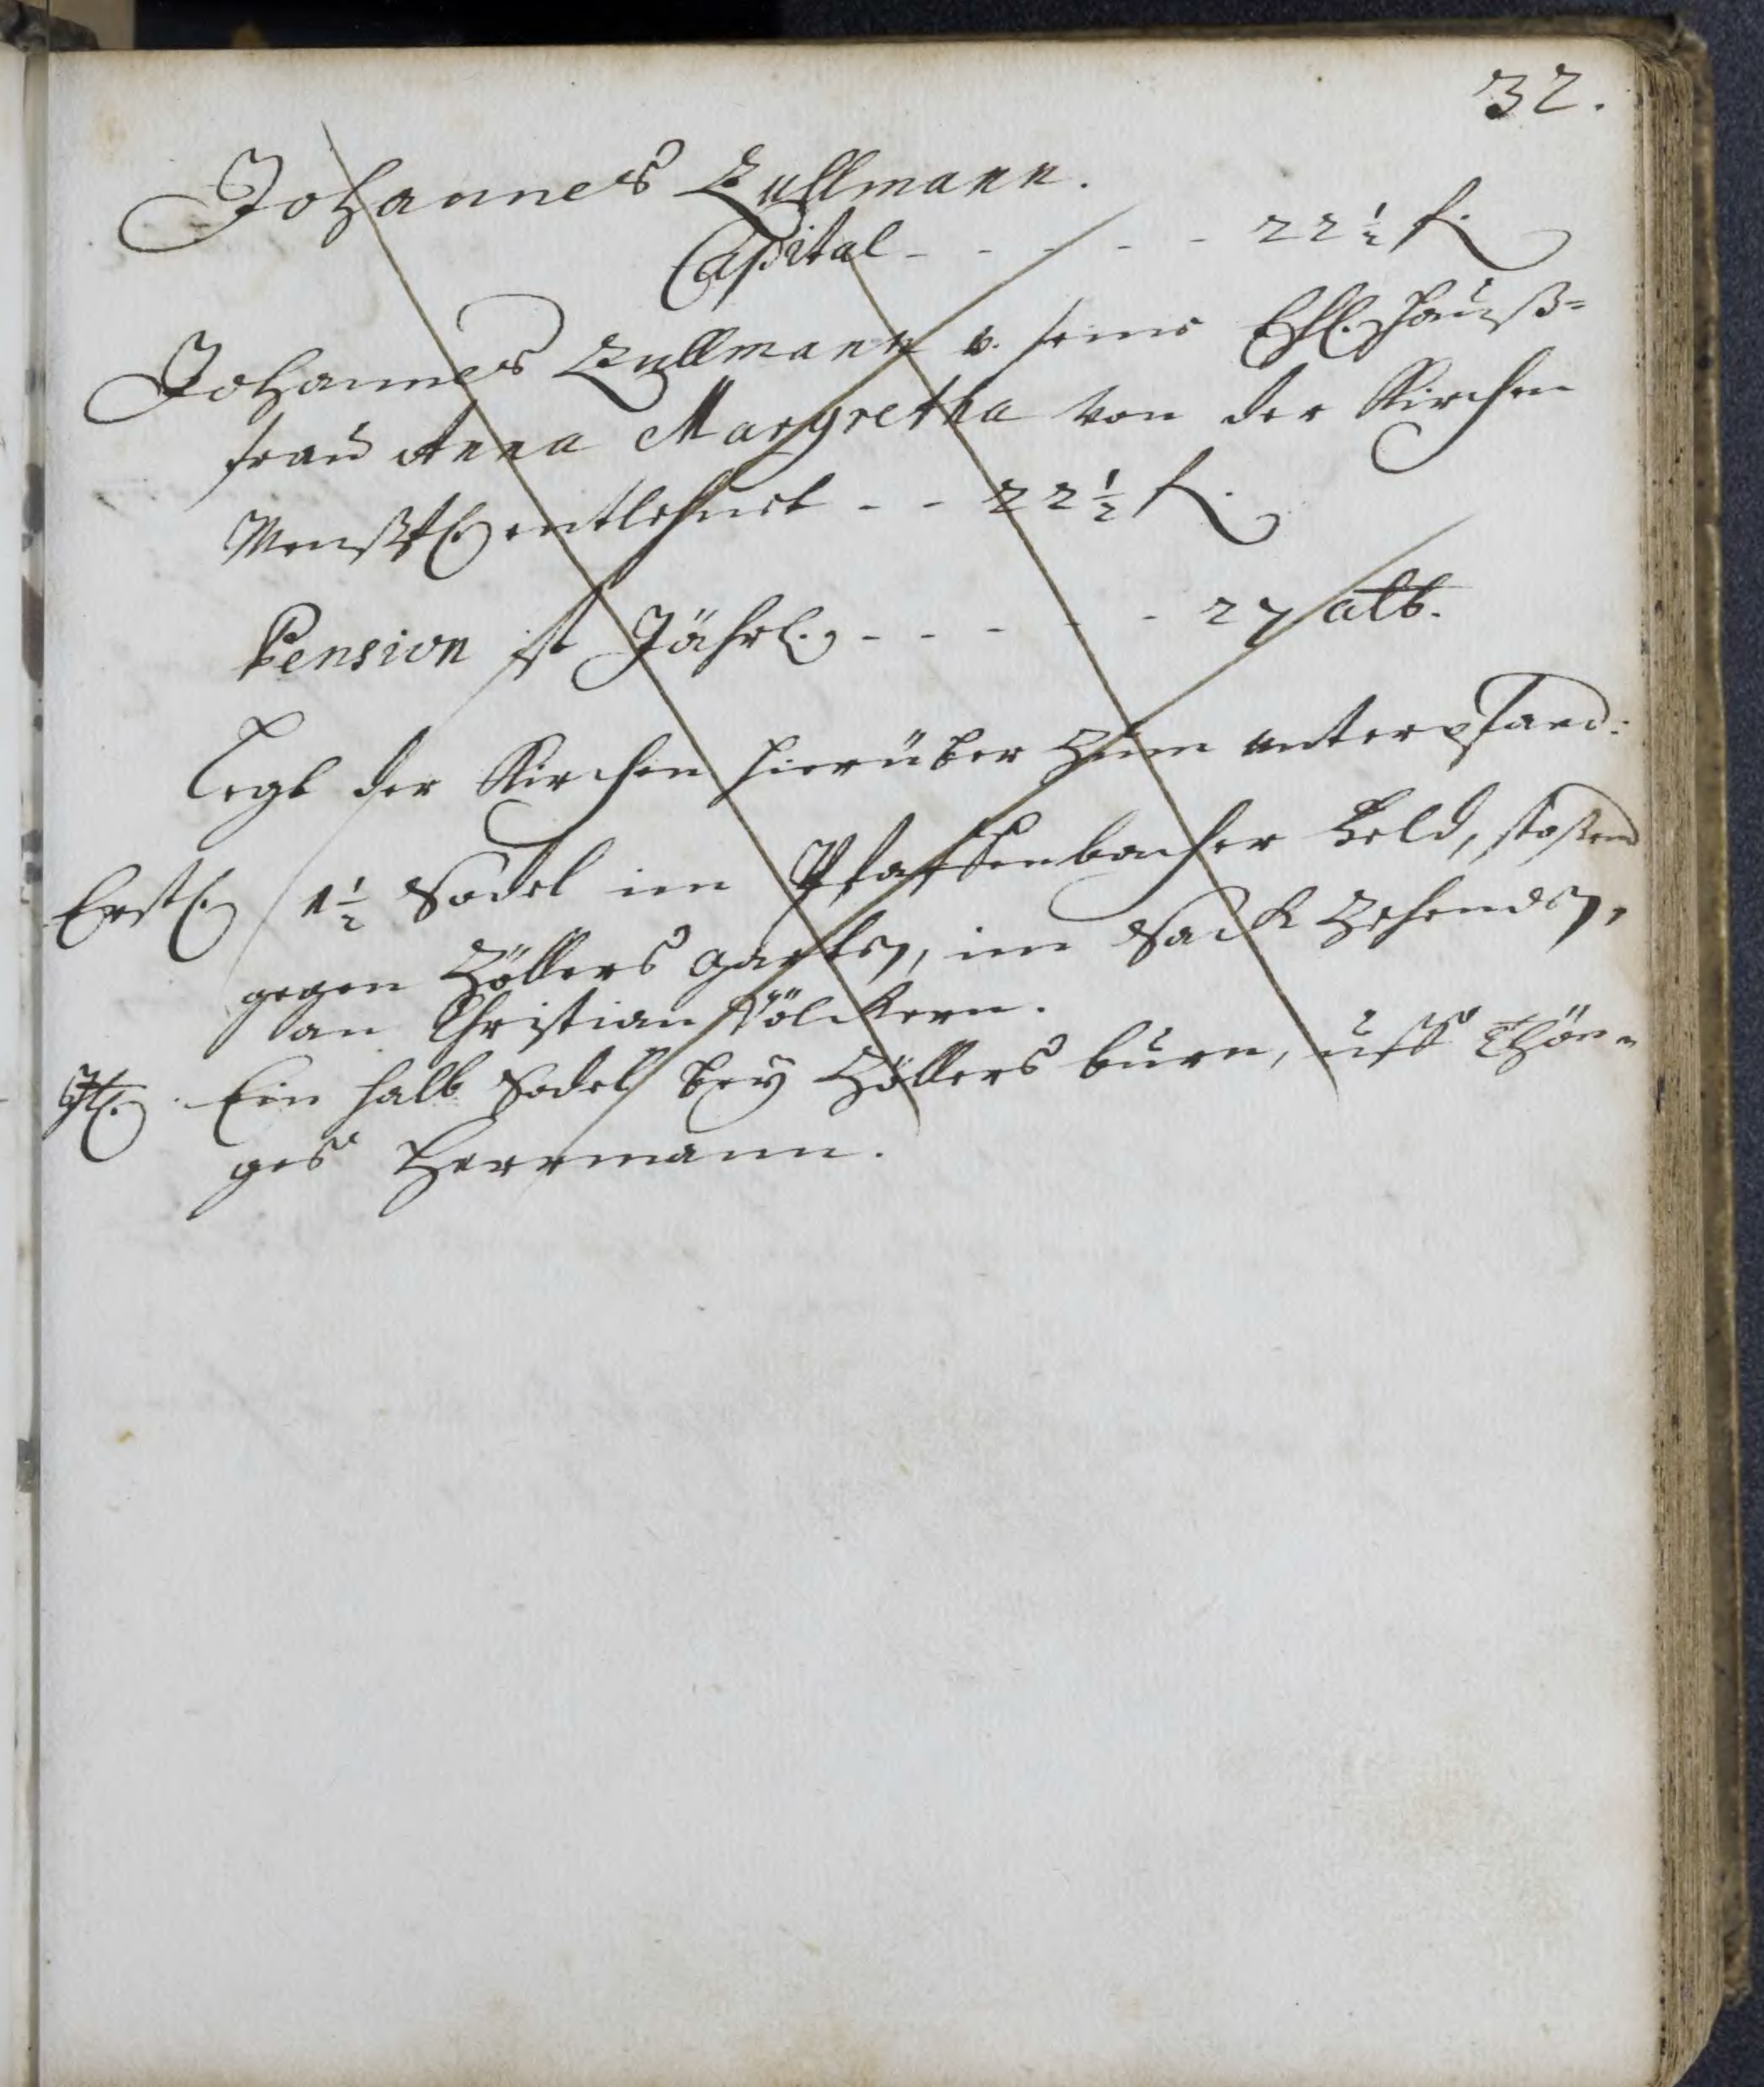 32.
Johannes Kullmann.
Capital - - - - - 22½ fl.
Johannes Kullmann v. seine Ehl. Hauß=
frau Anna Margretha von der Kirchen
entlehnet - - 22½ fl.
Pension ist Jährl. - - - - - 27 alb.
Legt der Kirchen hierüber zum unterpfand:
Erstl. 1½ Sodel im Pfaffenbacher Feld, stosend
gegen Zöllers garten, im Sack Zehenden,
an Christian Völckern.
It. Ein halb Sodel bey Zöllers burn, uff Thön=
ges Herrmann.